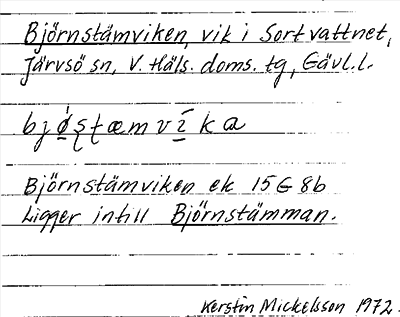 Björnstämviken, vik i Sortvattnet,
Järvsö sn, V. Häls. doms. tg, Gävl.l.
Björnstämviken ek 15G 8b
Ligger intill Björnstämman.
Kerstin Mickelsson 1972.